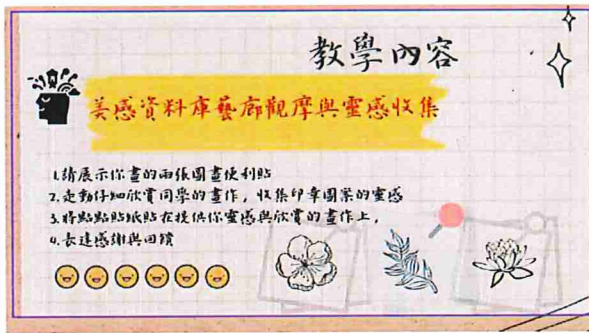 教學內容
美感資料庫藝廊觀摩與靈感收集
1.請展示你畫的兩張圖畫便利貼
2.走動仔細欣賞同學的畫作，收集印章圖案的靈感
3.將點點貼紙貼在提供你靈感與欣賞的畫作上，
4.表達感謝與回饋